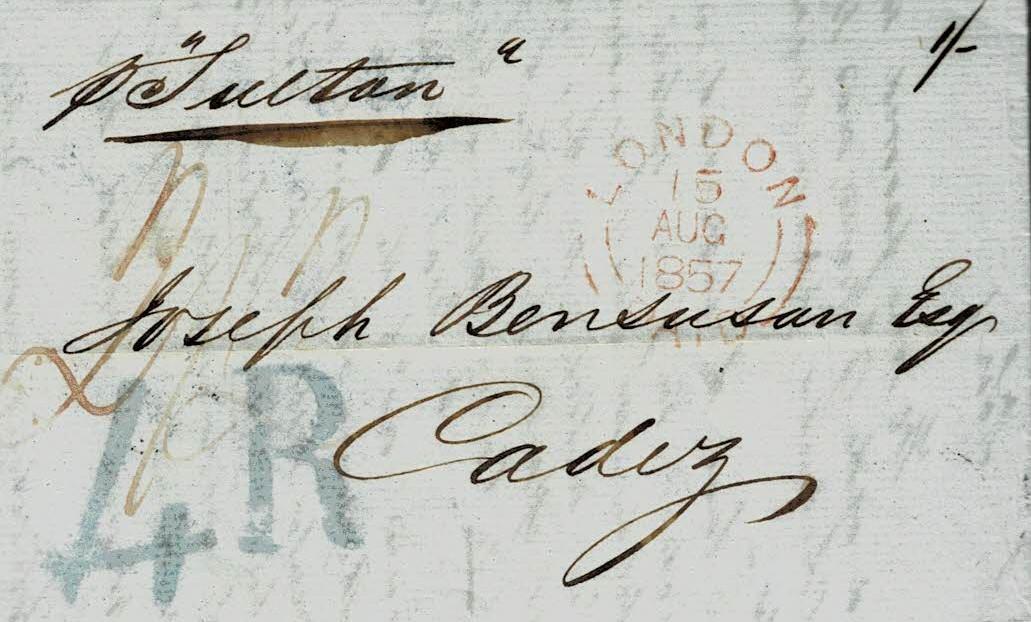 p "Sultan"
1/-
LONDON
15
AUG
1857
Joseph Bensusan Esq
4R
Cadiz